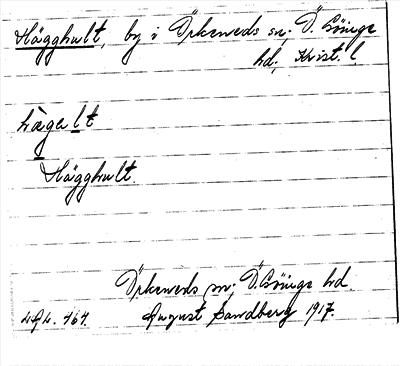 Hägghult, by i Örkeneds sn; Ö. Göinge
hd, Krist. l.
hàgalt
Hägghult.
Örkeneds sn; Ö. Göinge hd.
August Sandberg 1917.